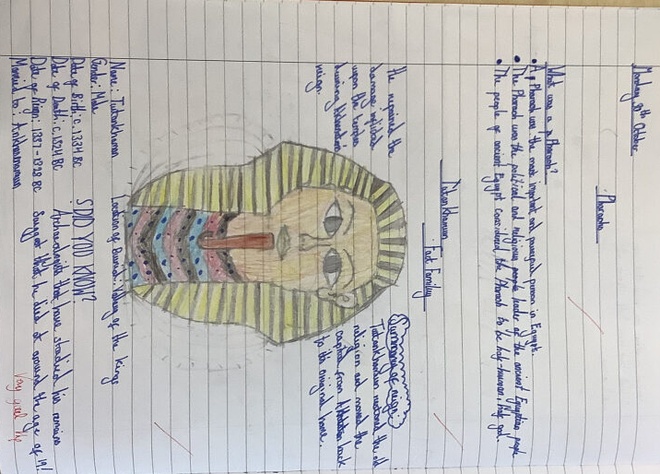 Monday 30th October
Pharaohs
What was a pharaoh?
• A Pharaoh was the most important and powerful person in Egypt.
• The Pharaoh was the political and religious people leader of the ancient Egyptian people
• The people of ancient Egypt considered the Pharaoh to be half-human, half god.
Tutankhamun
Fact File
He repaired the
damage inflicted
upon the temples
during Akhenaten's
reign.
Summary of reign:
Tutankhamun restored the old
religion and moved the
capital from back
to its original home.
Name: Tutankhamun
Gender: Male
Date of Birth: c. 1334 BC
Date of Death: c. 1324 BC
Date of Reign: 1337-1328 BC
Married to: Ankhesenamun
Location of Burial: Valley of the kings
DID YOU KNOW?
Archaeologists that have studied his remains
Suggest that he died at around the age of 19!
Very good